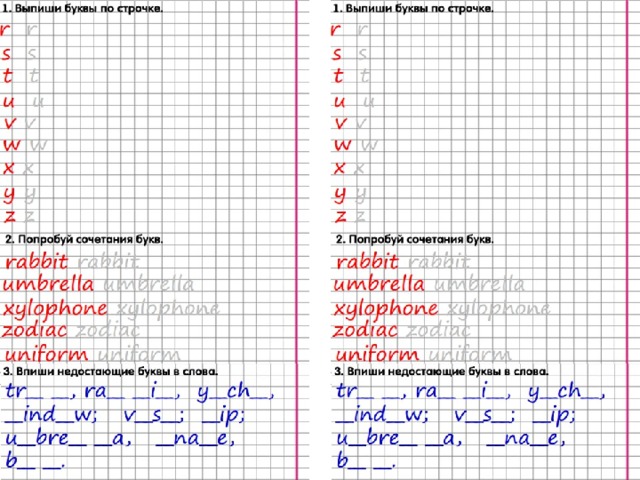 1. Выпиши буквы по строчке.
r r
s s
t t
u u
v v
w w
x x
y y
z z
2. Попробуй сочетания букв.
rabbit rabbit
umbrella umbrella
xylophone xylophone
zodiac zodiac
uniform uniform
3. Впиши недостающие буквы в слова.
tr__ __, ra__ __i__, y__ch__,
__ind__w; v__s__; __ip;
u__bre__ __a, __na__e,
b__ __.
1. Выпиши буквы по строчке.
r r
s s
t t
u u
v v
w w
x x
y y
z z
2. Попробуй сочетания букв.
rabbit rabbit
umbrella umbrella
xylophone xylophone
zodiac zodiac
uniform uniform
3. Впиши недостающие буквы в слова.
tr__ __, ra__ __i__, y__ch__,
__ind__w; v__s__; __ip;
u__bre__ __a, __na__e,
b__ __.